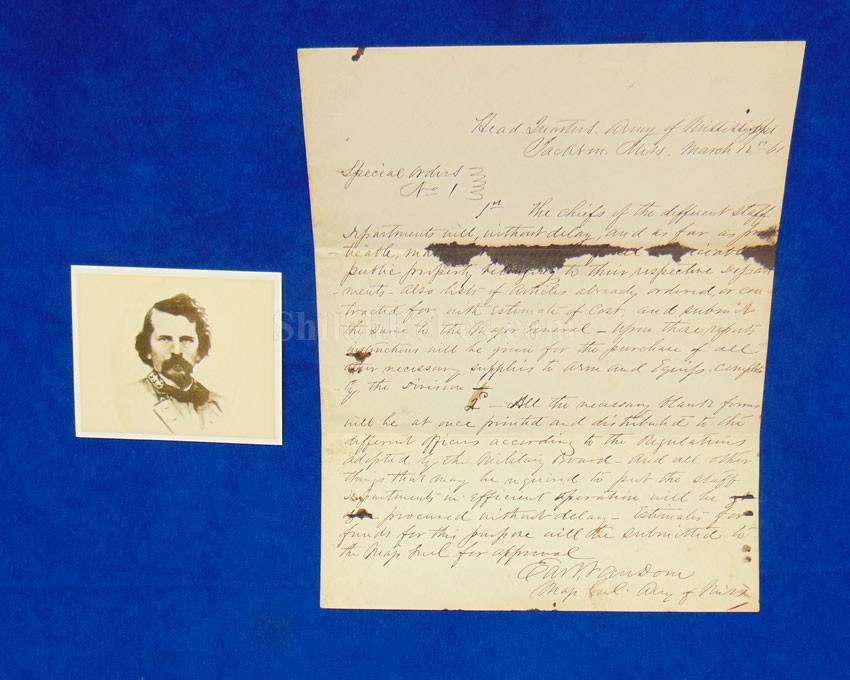 Head Quarters. Army of Mississippi
Jackson. Miss. March 12th 61
Special Orders
No 1
1st The chiefs of the different Staff
Departments will, without delay, and as far as prac
ticable, ma
public property belonging to their respective Depart
-ments - Also lists of articles already ordered, or con-
tracted for with Estimate of Cost, and submit
the same to the Major General - Upon these reports
instructions will be given for the purchase of all
other necessary supplies to arm and Equip completely
the Division
2d - All the necessary blank forms
will be at once printed and distributed to the
different officers according to the Regulations
adopted by the Military Board - And all other
things that may be required to put the Staff
Departments in Efficient operation will be
procured without delay - Estimates for
funds for this purpose will be submitted to
the Maj Genl for approval
Earl Van Dorn
Maj Genl. Army of Miss